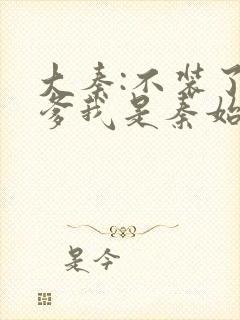 大秦:不装了
爹我是秦始
是今